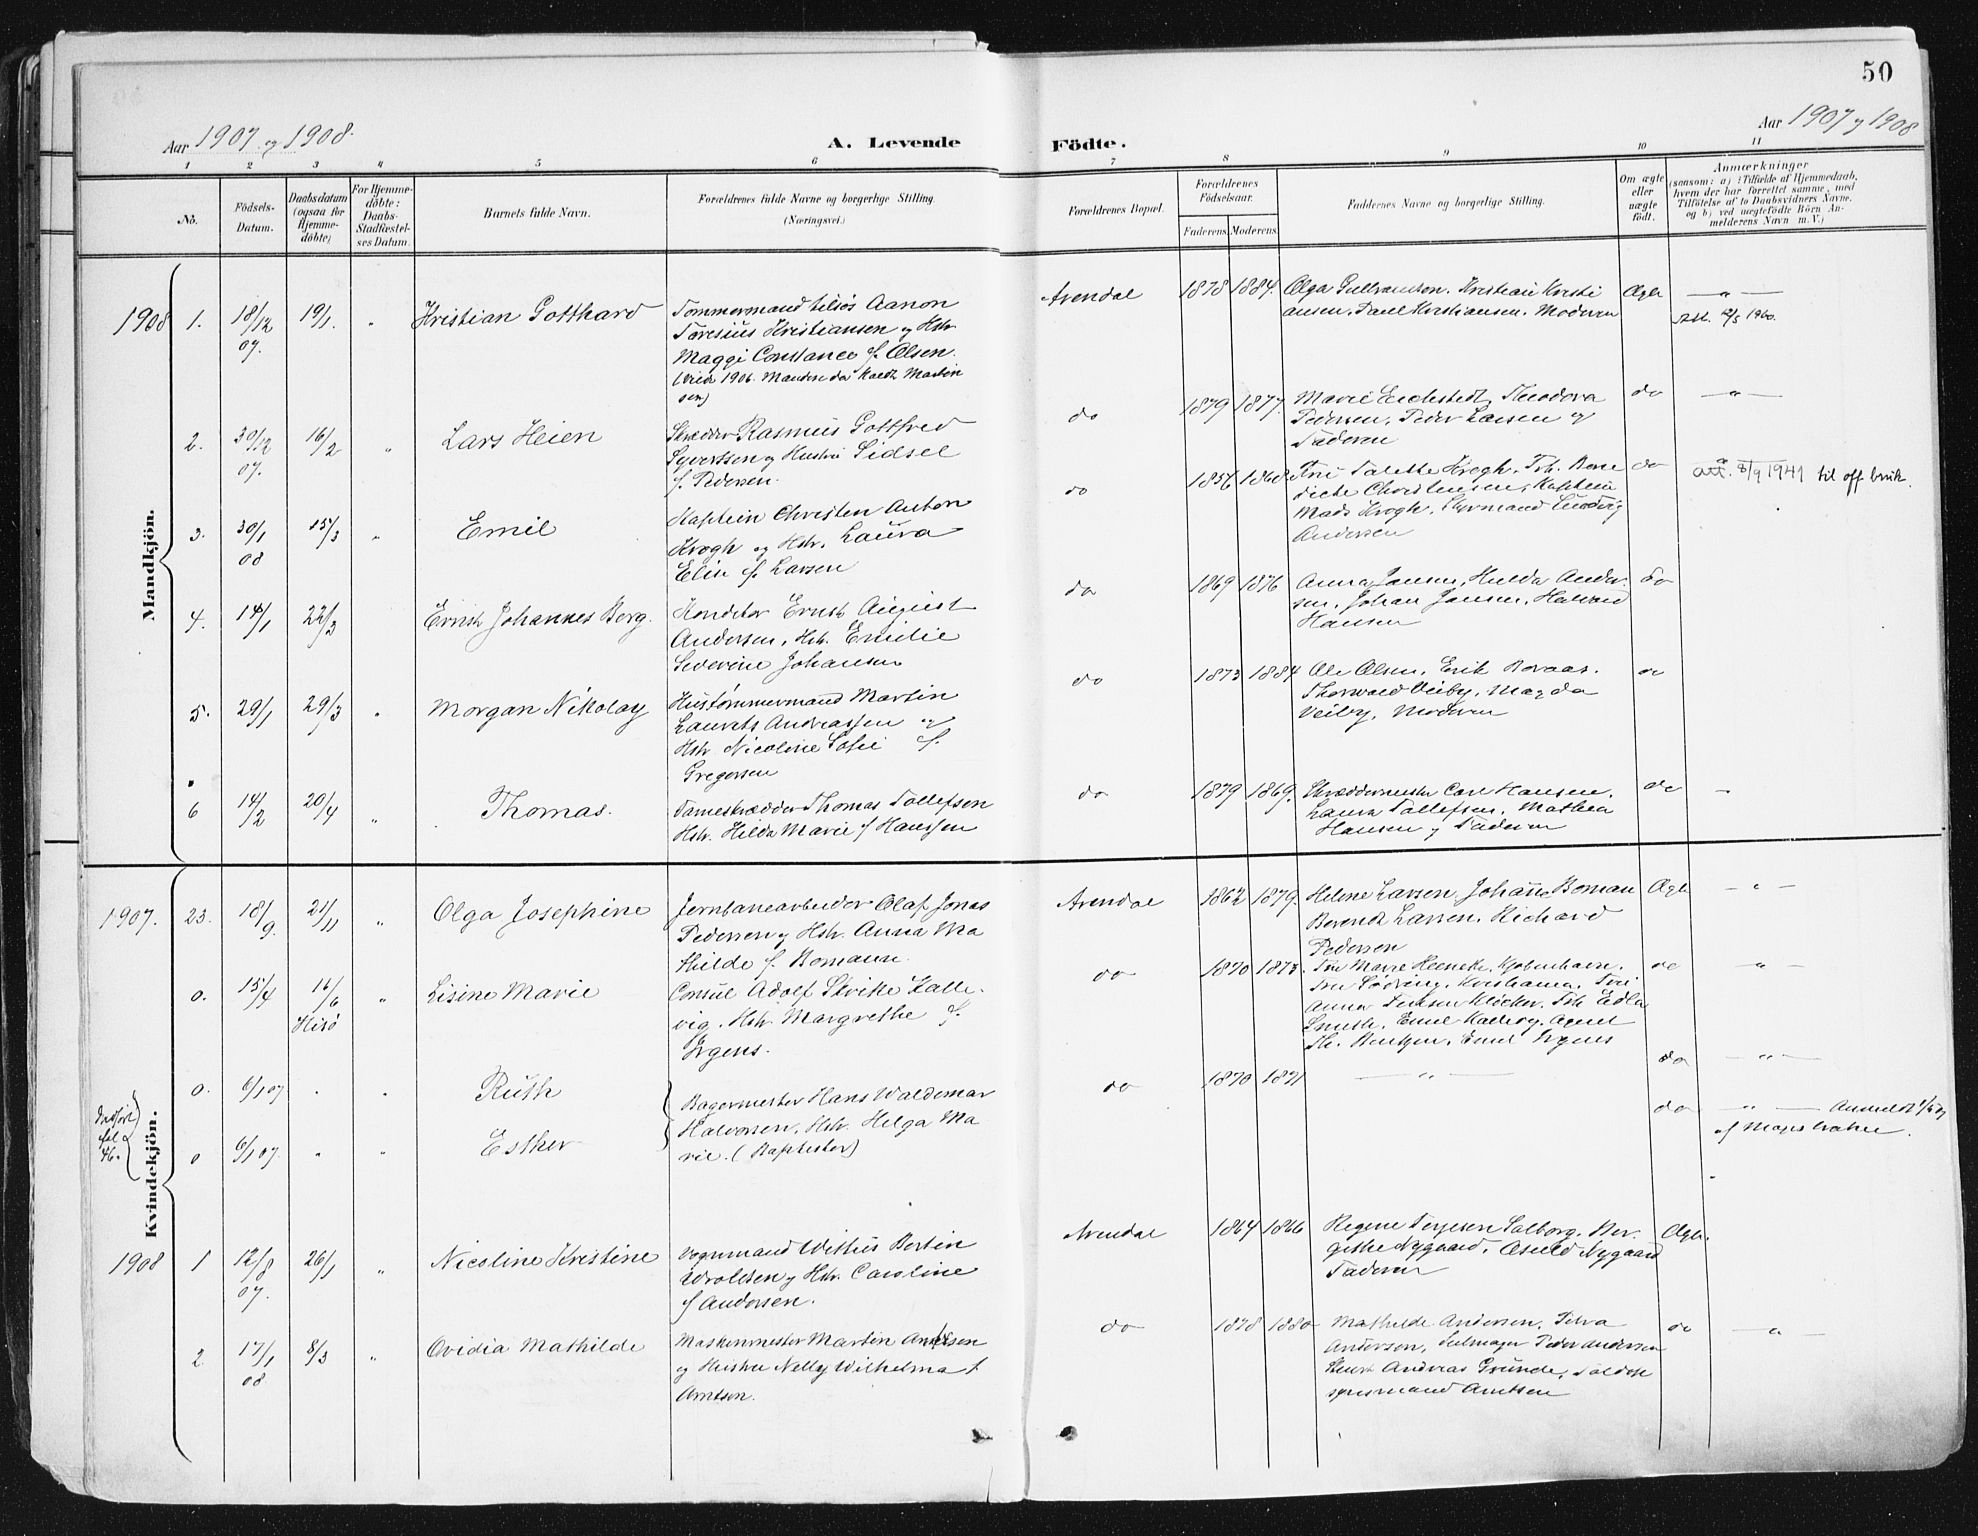 50
Aar 1907 og 1908.
A. Levende Födte.
Aar 1907 y 1908
1 2 3 4 5 6 7 8 9 10 11
No.
Födsels-
Datum.
Daabsdatum
(ogsaa for
Hjemme-
döbte)
For Hjemme-
döbte:
Daabs-
Stadfæstel-
ses Datum.
Barnets fulde Navn.
Forældrenes fulde Navne og borgerlige Stilling.
(Næringsvei.)
Forældrenes Bopæl.
Forældrenes
Födselsaar.
Faderens. Moderens.
Faddernes Navne og borgerlige Stilling.
Om ægte
eller
uægte
födt.
Anmærkninger
(saasom: a) i Tilfælde af Hjemmedaab,
hvem der har forrettet samme, med
Tilföielse af to Daabsvidners Navne.
og b) ved uægtefödte Börn An-
melderens Navn m. V.)
Mandkjön.
1908 1. 18/12 07. 19/1. " Kristian Gotthard
Tømmermand Aanon
Toresius Kristiansen og Hstr
Maggi Constance f. Olsen.
Arendal 1878 1884.
Olga Kristian Kristi
ansen, Moderen
Ægte — " —
Att. 1960.
2. 30/12 07. 16/2 " Lars Heien
Skrædder Rasmus Gottfred
Syvertsen og Hustru Sidsel
f. Pedersen.
do 1879 1877.
Marie Theodora
Pedersen, Peder Larsen y
Faderen
do — " —
3. 30/1 08 15/3 " Emil
Kaptein Christen Anton
Krogh og Hstr. Laura
Elise f. Larsen
do 1868
Fru Krogh, Frk. Bene
dicte Christensen, Kaptein
Mads Krogh, Styrmand Ludvig
Andersen
do
att. 8/9 1941 til off bruk.
4. 14/1 22/3 Ernst Johannes Berg.
Konditor Ernst August
Andersen, Hstr. Emilie
Severine Johansen
do 1869 1876
Anna Jansen, Hulda Ander-
sen, Johan Jansen,
Hansen
do
5. 29/1 29/3 " Morgan Nikolay
Hustømmermand Martin
Laurits Andreassen y
Hstr. Nicoline Sofie f.
Gregersen
do 1873 1884
Ole Olsen, Erik
Thorwald Veiby, Magda
Veiby, Moderen
do
6 14/2 20/4 " Thomas.
Dameskrædder Thomas Tollefsen
Hstr. Hilda Marie f Hanssen
do 1879 1869.
Skræddermester Carl Hansen,
Laura Tollefsen, Mathea
Hansen y Faderen
do
Kvindekjön.
1907. 23. 18/9. 21/11 " Olga Josephine
Jernbanearbeider Olaf Jonas
Pedersen y Hstr. Anna Ma
thilde f. Bomann.
Arendal 1862 1879.
Helene Larsen, Johanne Boman
Berendt Larsen, Richard
Pedersen
Ægte — " —
0. 15/4 16/6 Hisö " Lisine Marie
Consul Adolf Strike Kalle-
vig, Hstr. Margrethe f.
Irgens.
do 1870 1873.
Fru Marie Heencke, Kjøbenhavn,
Kristiania, Fru
Anna Klöcker, Frk Edla
Smith, Emil Kallevig,
Emil Irgens
do — " —
0. 6/1 07 Ruth
Bagermester Hans Waldemar
Halvorsen, Hstr. Helga Ma
rie. (Baptister)
do 1870 1871 — " —
do — " —
0 6/1 07. " " Esther
do — " — Anmeldt
af Magistraten.
46.
1908 1 12/8 07. 26/1 " Nicoline Kristine
Vognmand Bertin
y Hstr. Caroline
f Andersen.
Arendal 1864 1866
Regine Terjesen Salborg,
Nygaard, Nygaard
Faderen
Ægte.
2 17/1 08 8/3 " Ovidia Mathilde
Maskinmester Martin
og Hustru Nelly Wilhelma f
Arntsen.
do 1878 1880
Mathilde Andersen,
Andersen, Seilmager Peder Andersen
Andreas Grunde,
Arntsen
do — " —